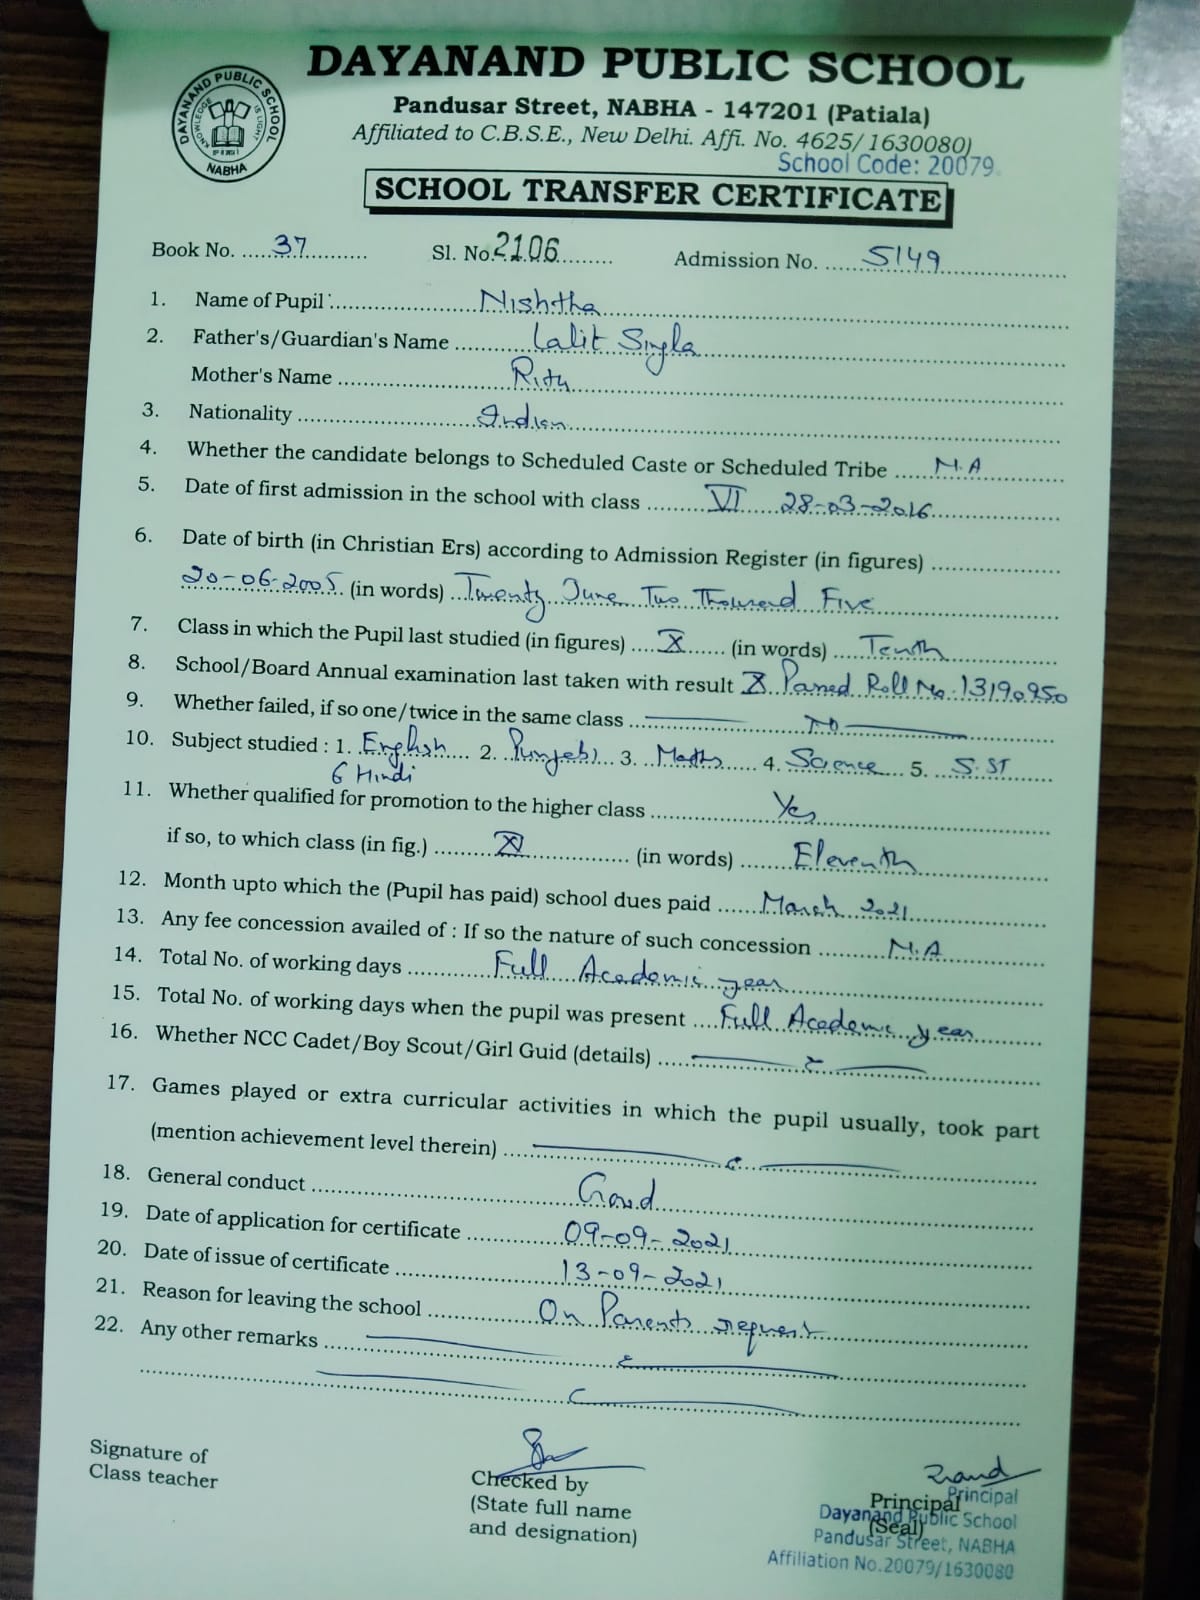 DAYANAND PUBLIC SCHOOL
DAYANAND PUBLIC SCHOOL
KNOWLEDGE IS LIGHT
NABHA
Pandusar Street, NABHA - 147201 (Patiala)
Affiliated to C.B.S.E., New Delhi. Affi. No. 4625/1630080)
School Code: 20079
SCHOOL TRANSFER CERTIFICATE
Book No. 37 Sl. No. 2106 Admission No. 5149
1. Name of Pupil Nishtha
2. Father's/Guardian's Name Lalit Singla
Mother's Name Ritu
3. Nationality Indian
4. Whether the candidate belongs to Scheduled Caste or Scheduled Tribe N.A
5. Date of first admission in the school with class VI 28-03-2016
6. Date of birth (in Christian Ers) according to Admission Register (in figures)
20-06-2005 (in words) Twenty June Two Thousand Five
7. Class in which the Pupil last studied (in figures) X (in words) Tenth
8. School/Board Annual examination last taken with result X Passed Roll No. 13190950
9. Whether failed, if so one/twice in the same class No
10. Subject studied : 1. English 2. Punjabi 3. Maths 4. Science 5. S.ST
6 Hindi
11. Whether qualified for promotion to the higher class Yes
if so, to which class (in fig.) XI (in words) Eleventh
12. Month upto which the (Pupil has paid) school dues paid March 2021
13. Any fee concession availed of : If so the nature of such concession N.A
14. Total No. of working days Full Academic year
15. Total No. of working days when the pupil was present Full Academic year
16. Whether NCC Cadet/Boy Scout/Girl Guid (details)
17. Games played or extra curricular activities in which the pupil usually, took part
(mention achievement level therein)
18. General conduct Good
19. Date of application for certificate 09-09-2021
20. Date of issue of certificate 13-09-2021
21. Reason for leaving the school On Parents request
22. Any other remarks
Signature of
Class teacher
Checked by
(State full name
and designation)
Principal
(Seal)
Principal
Dayanand Public School
Pandusar Street, NABHA
Affiliation No.20079/1630080